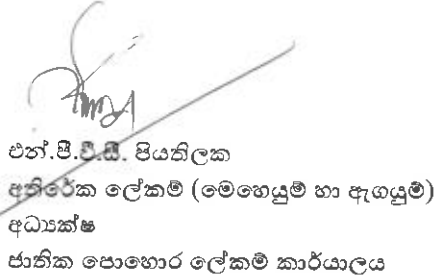 එන්.පී.වී.සී. පියතිලක
අතිරේක ලේකම් (මෙහෙයුම් හා ඇගයුම්)
අධ්‍යක්ෂ
ජාතික පොහොර ලේකම් කාර්යාලය